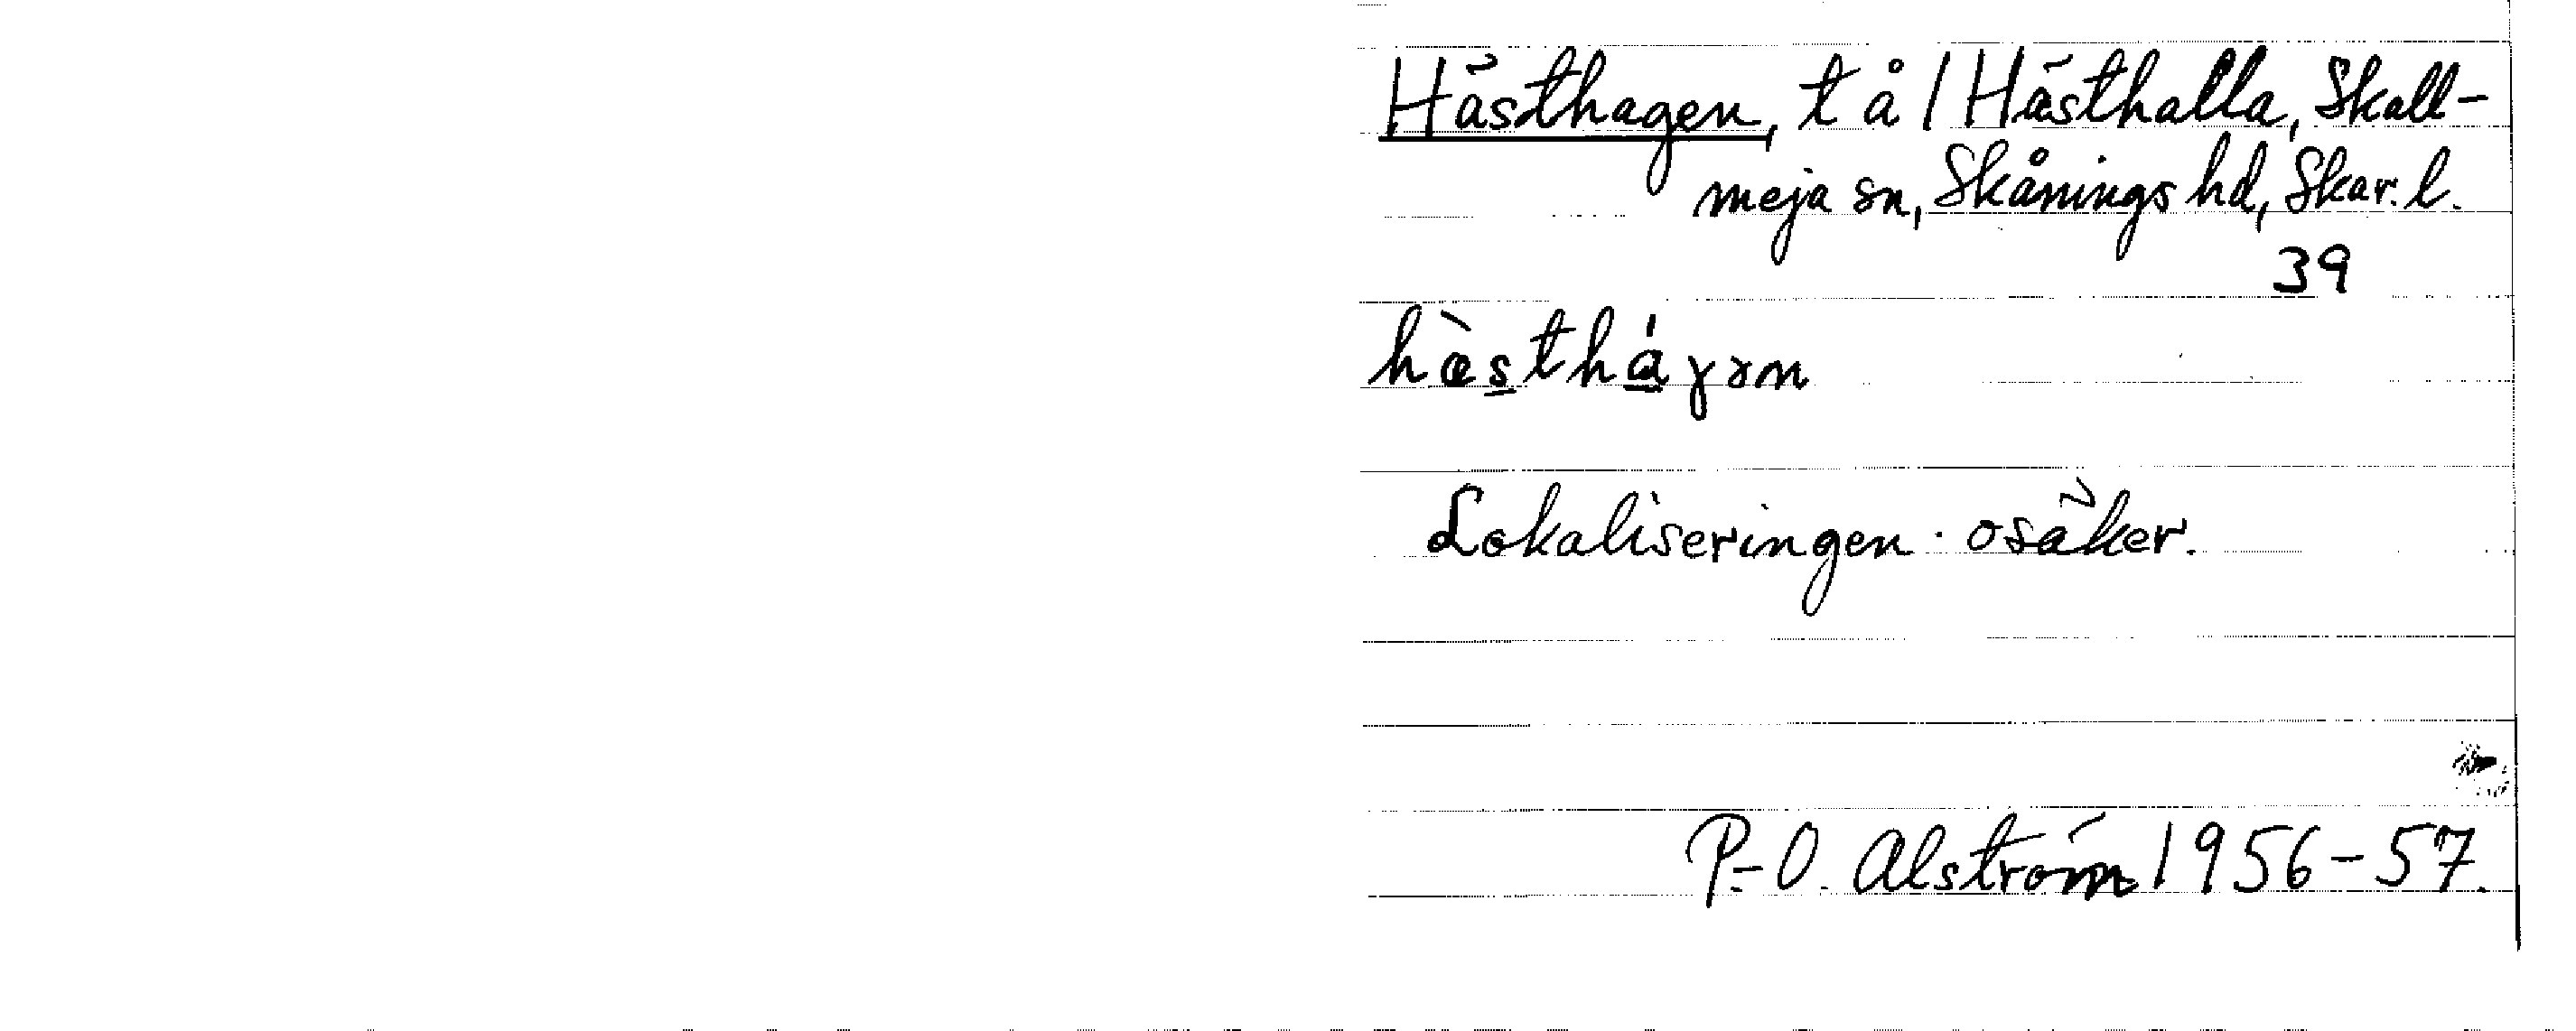 Hästhagen, t å / Hästhalla, Skall-
meja sn, Skånings hd, Skar. l.
39
hæ̀stháɣən
Lokaliseringen osäker.
P.-O. Alström 1956-57.